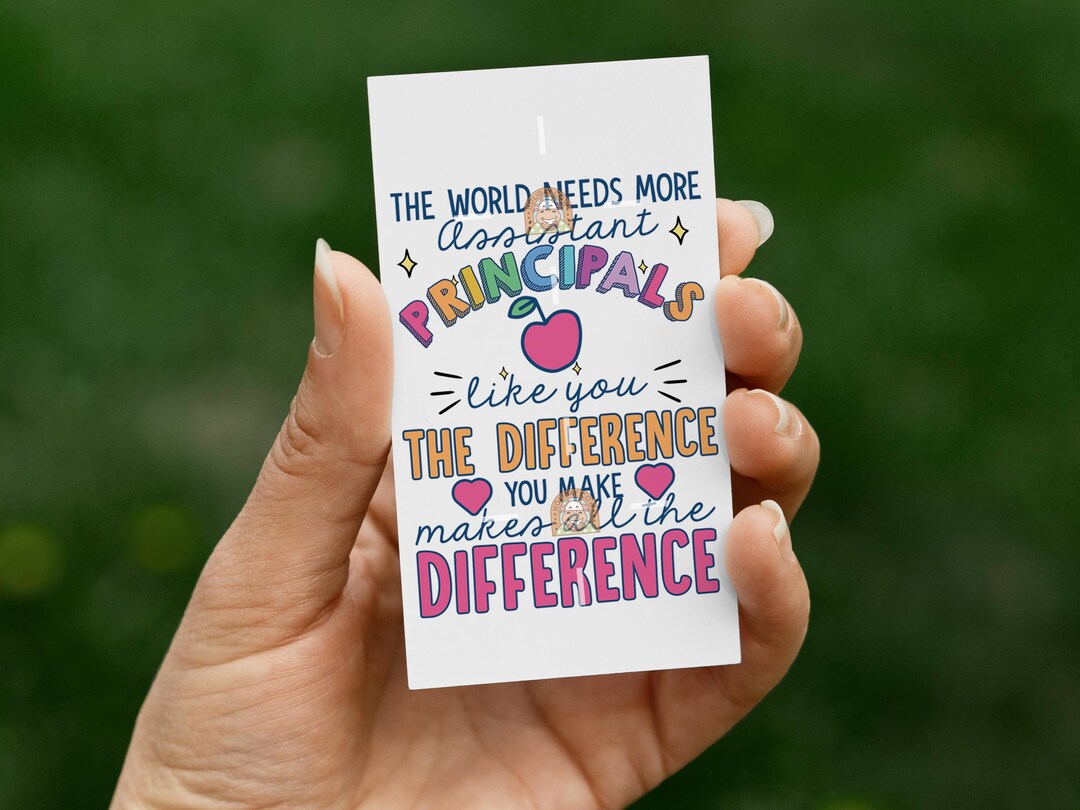 THE WORLD NEEDS MORE
Assistant
PRINCIPALS
like you
THE DIFFERENCE
YOU MAKE
makes all the
DIFFERENCE